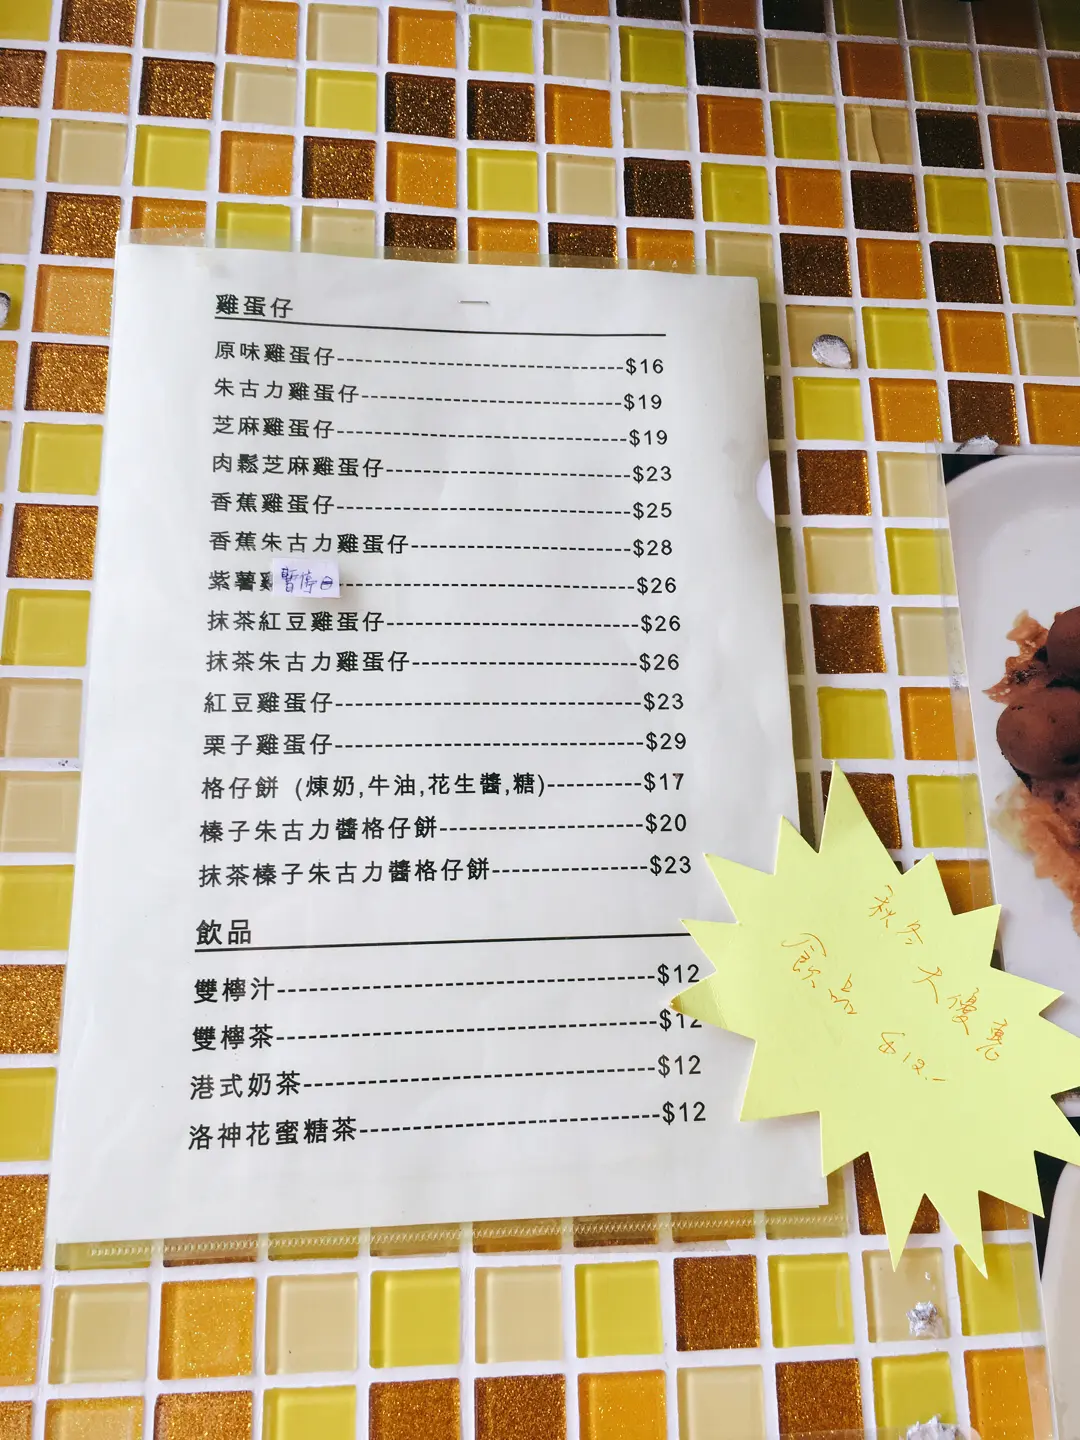 雞蛋仔
原味雞蛋仔--------------------------------$16
朱古力雞蛋仔-----------------------------$19
芝麻雞蛋仔--------------------------------$19
肉鬆芝麻雞蛋仔---------------------------$23
香蕉雞蛋仔---------------------------------$25
香蕉朱古力雞蛋仔------------------------$28
紫薯 暫停 ---------------------------------$26
抹茶紅豆雞蛋仔----------------------------$26
抹茶朱古力雞蛋仔-------------------------$26
紅豆雞蛋仔----------------------------------$23
栗子雞蛋仔----------------------------------$29
格仔餅 (煉奶,牛油,花生醬,糖)----------$17
榛子朱古力醬格仔餅----------------------$20
抹茶榛子朱古力醬格仔餅-----------------$23
飲品
雙檸汁---------------------------------------$12
雙檸茶---------------------------------------$12
港式奶茶------------------------------------$12
洛神花蜜糖茶------------------------------$12
秋冬大優惠
飲品 $12.-